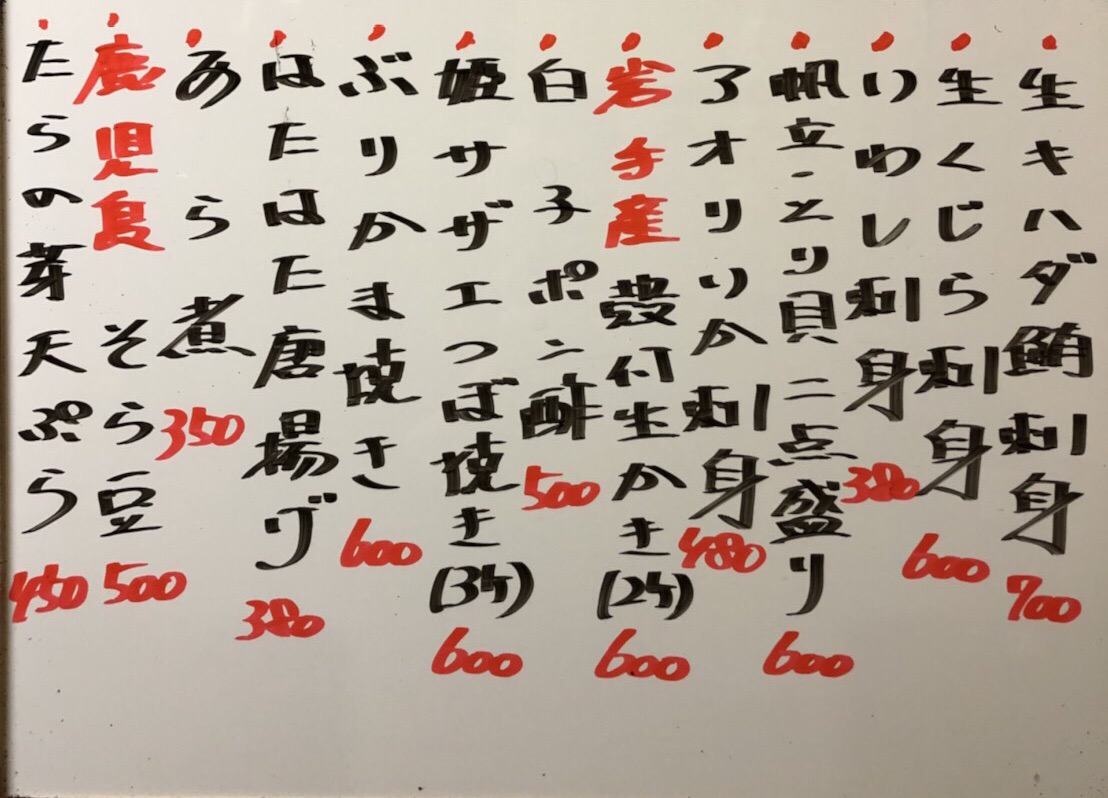 生キハダ鮪刺身 700
生くじら刺身 600
いわし刺身 380
帆立・とり貝二点盛り 600
アオリいか刺身 480
岩手産 殻付生かき(2ケ) 600
白子ポン酢 500
姫サザエつぼ焼き(3ケ) 600
ぶりかま焼き 600
はたはた唐揚げ 380
あら煮 350
鹿児島 そら豆 500
たらの芽天ぷら 450